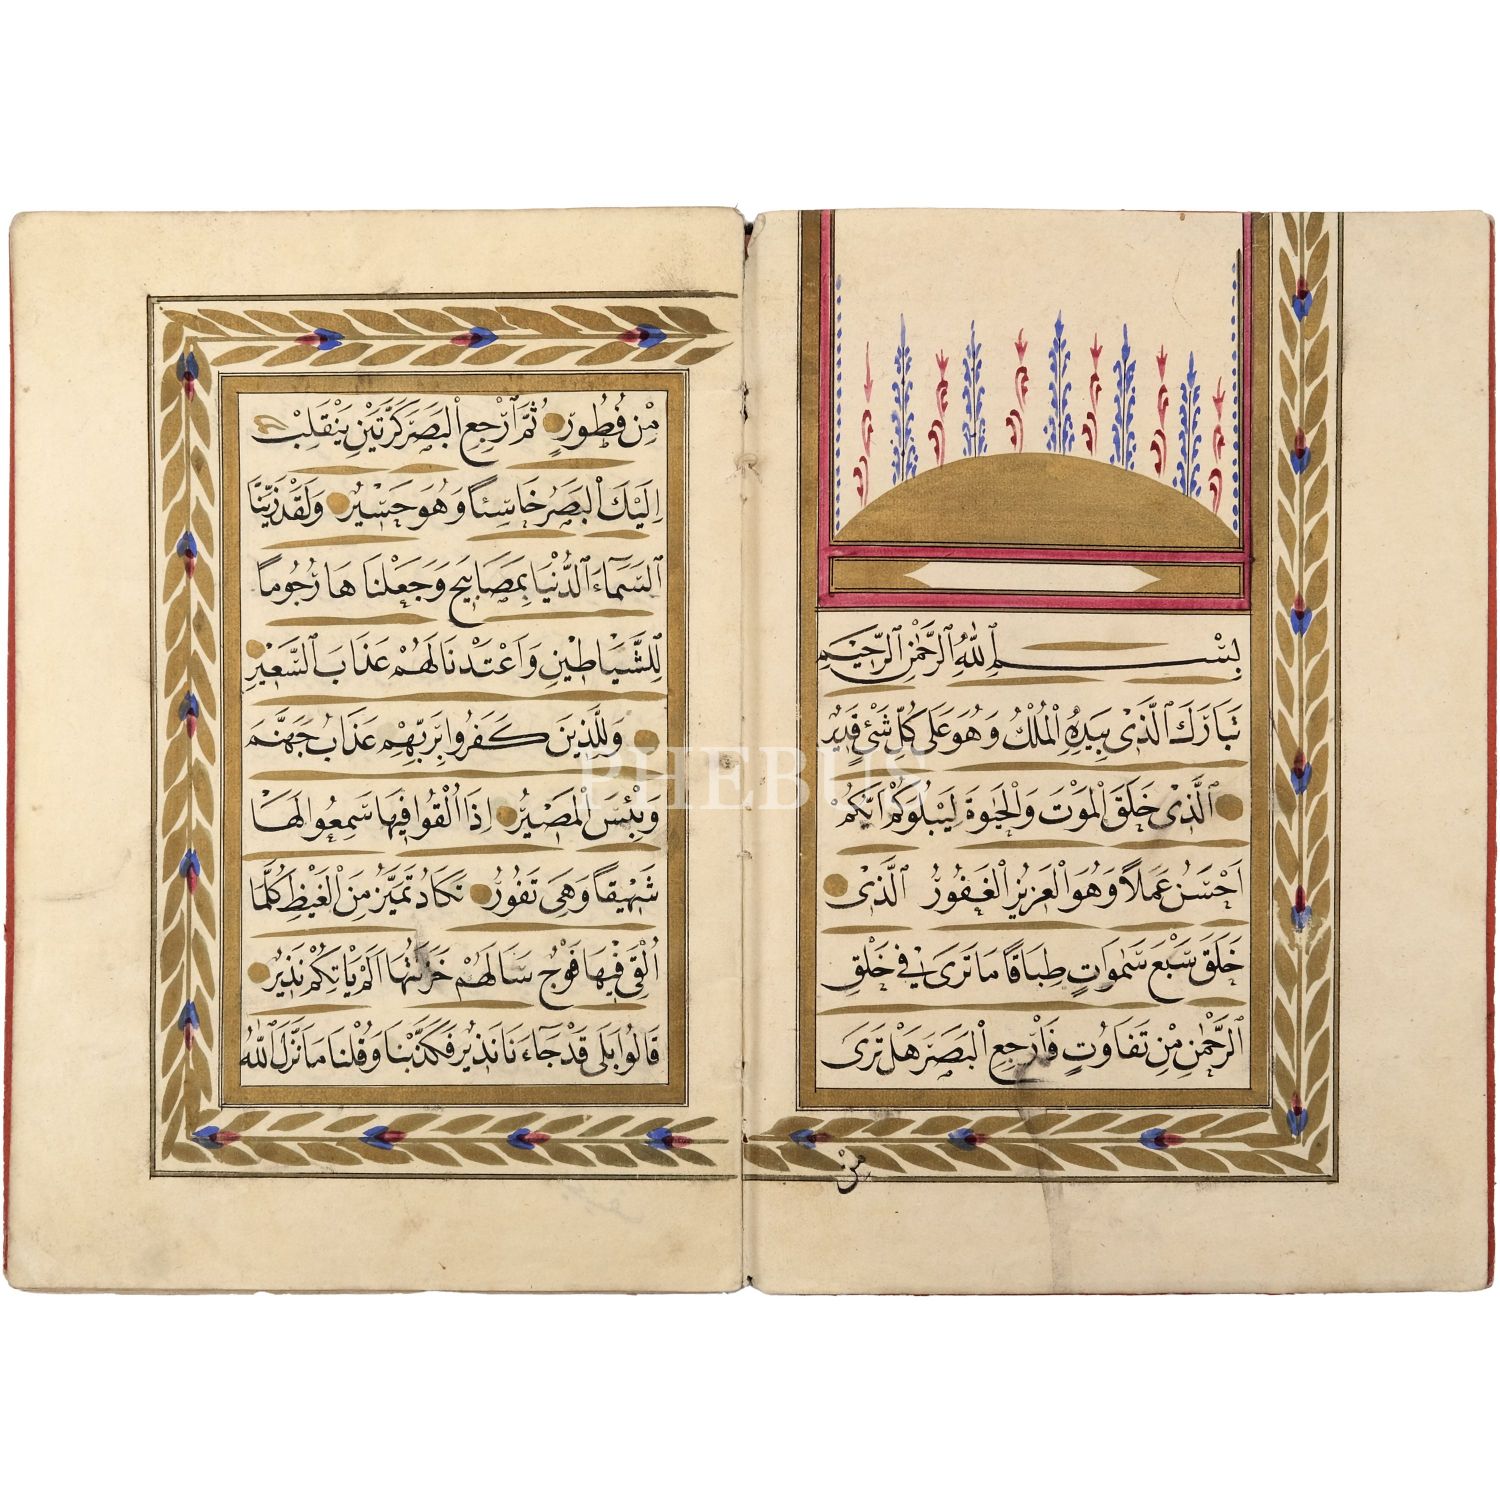 بِسْــــمِ اللهِ الرَّحْمٰنِ الرَّحِيمِ
تَبَارَكَ الَّذِى بِيَدِهِ الْمُلْكُ وَهُوَ عَلٰى كُلِّ شَیْءٍ قَدِيرٌ
الَّذِى خَلَقَ الْمَوْتَ وَالْحَيٰوةَ لِيَبْلُوَكُمْ اَيُّكُمْ
اَحْسَنُ عَمَلاً وَهُوَ الْعَزِيزُ الْغَفُورُ الَّذِى
خَلَقَ سَبْعَ سَمٰوَاتٍ طِبَاقًا مَا تَرٰى فِى خَلْقِ
الرَّحْمٰنِ مِنْ تَفَاوُتٍ فَارْجِعِ الْبَصَرَ هَلْ تَرٰى
مِنْ
مِنْ فُطُورٍ ثُمَّ ارْجِعِ الْبَصَرَ كَرَّتَيْنِ يَنْقَلِبْ
اِلَيْكَ الْبَصَرُ خَاسِئًا وَهُوَ حَسِيرٌ وَلَقَدْ زَيَّنَّا
السَّمَاءَ الدُّنْيَا بِمَصَابِيحَ وَجَعَلْنَاهَا رُجُومًا
لِلشَّيَاطِينِ وَاَعْتَدْنَا لَهُمْ عَذَابَ السَّعِيرِ
وَلِلَّذِينَ كَفَرُوا بِرَبِّهِمْ عَذَابُ جَهَنَّمَ
وَبِئْسَ الْمَصِيرُ اِذَا اُلْقُوا فِيهَا سَمِعُوا لَهَا
شَهِيقًا وَهِىَ تَفُورُ تَكَادُ تَمَيَّزُ مِنَ الْغَيْظِ كُلَّمَا
اُلْقِىَ فِيهَا فَوْجٌ سَاَلَهُمْ خَزَنَتُهَا اَلَمْ يَاْتِكُمْ نَذِيرٌ
قَالُوا بَلٰى قَدْ جَاءَنَا نَذِيرٌ فَكَذَّبْنَا وَقُلْنَا مَا نَزَّلَ اللهُ
PHEBUS